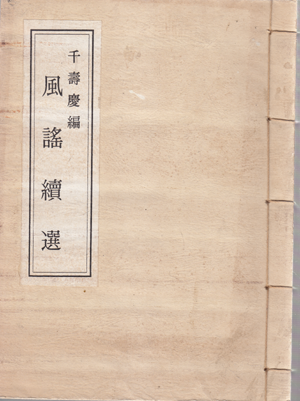 千壽慶編
風謠續選